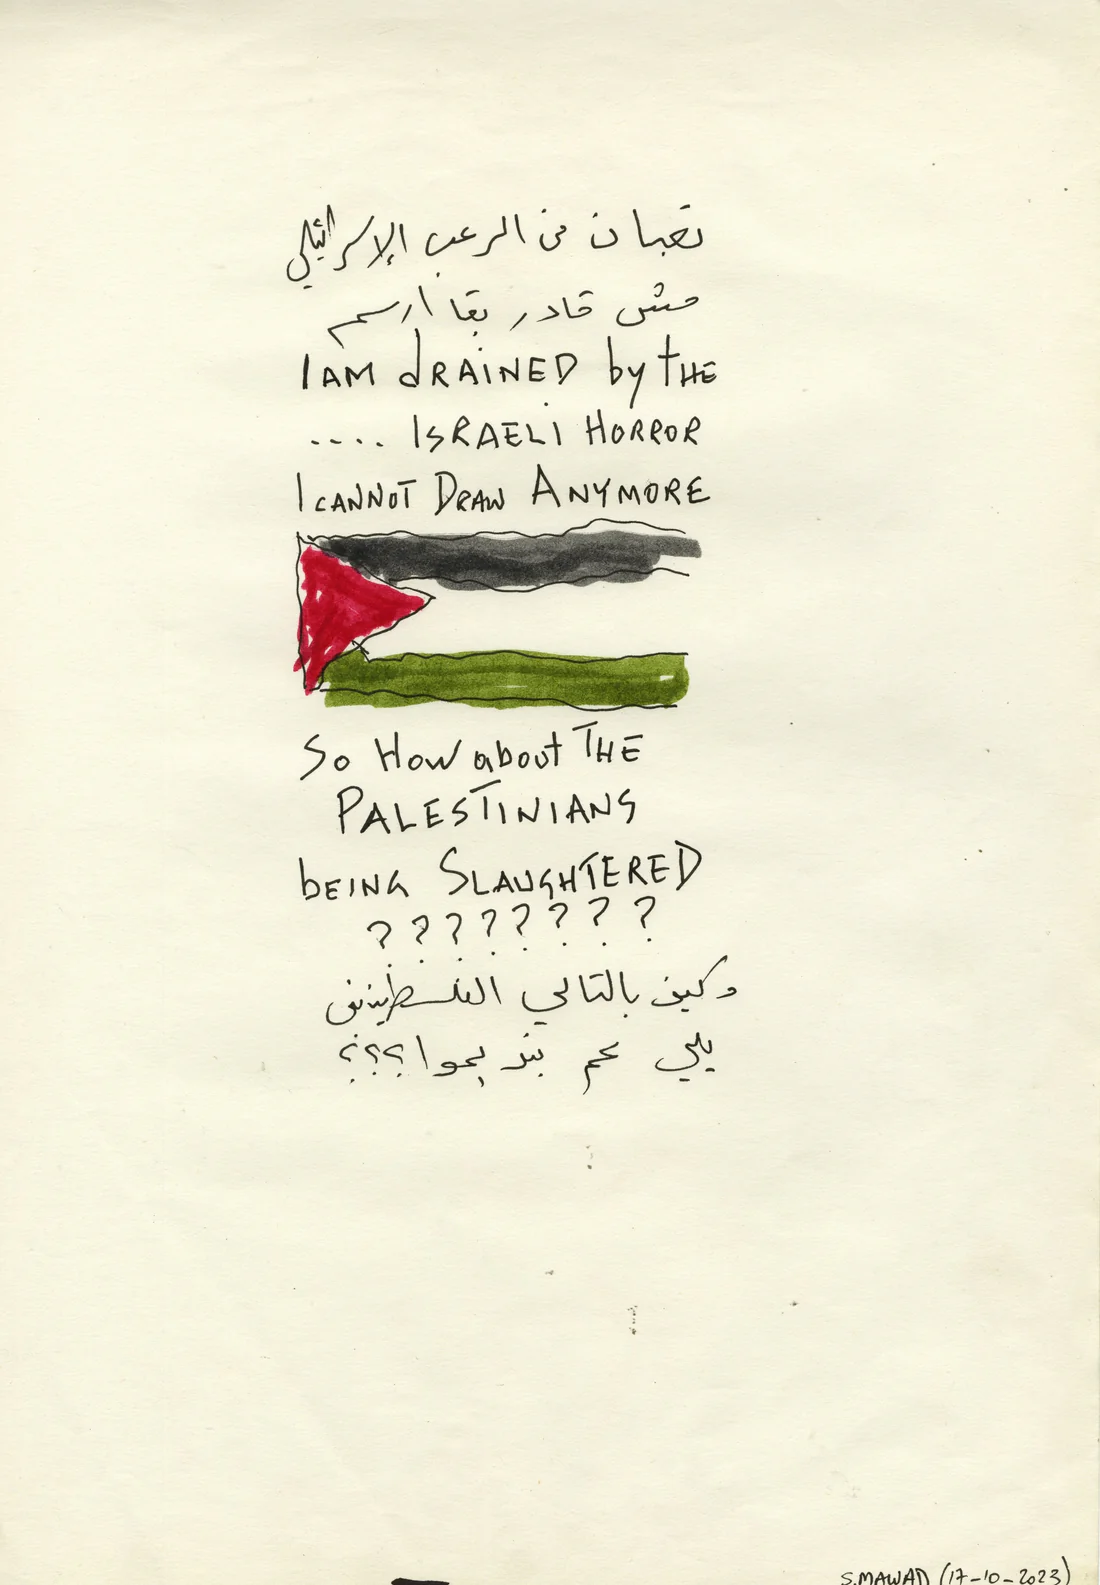 تعبان من الرعب الإسرائيلي
مش قادر بقا ارسم
I AM dRAiNED by tHE
.... ISRAELi HORROR
I CANNOT DRAW ANYMORE
So How about THE
PALESTINIANS
bEING SLAUGHTERED
????????
وكيف بالتالي الفلسطينيين
يلي عم بتدبحوا؟؟؟
S.MAWAD (17-10-2023)